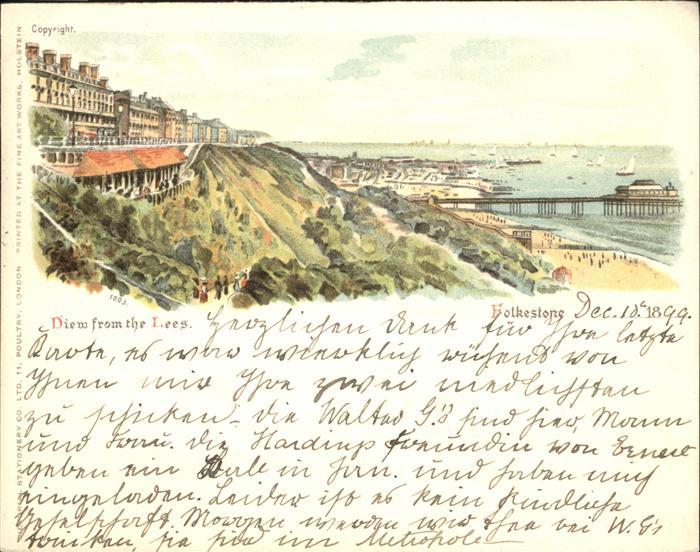 Copyright.
PICTORIAL STATIONERY CO. LTD., 11, POULTRY, LONDON PRINTED AT THE FINE ART WORKS, HOLSTEIN
1003.
View from the Lees.
Folkestone Dec. 10. 1899.
Herzlichen dank für Ihre letzte
Karte, es war wirklich von
Ihnen mir Ihre zwei niedlichsten
zu schicken - die Walter G's sind hier, Mann
und Frau. die Hardings Freundin von Ernest
geben ein Ball in Jan. und haben mich
eingeladen. Leider ist es kein
Gesellschaft. Morgen werden wir Thee bei W. G's
trinken, sie sind im Metropole